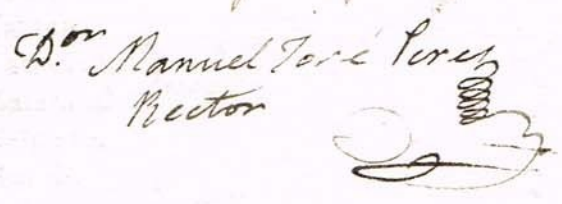 D.ᵒⁿ Manuel José Perez
Rector